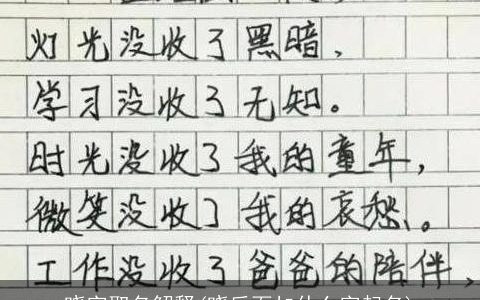 灯光没收了黑暗，
学习没收了无知。
时光没收了我的童年，
微笑没收了我的哀愁。
工作没收了爸爸的陪伴，